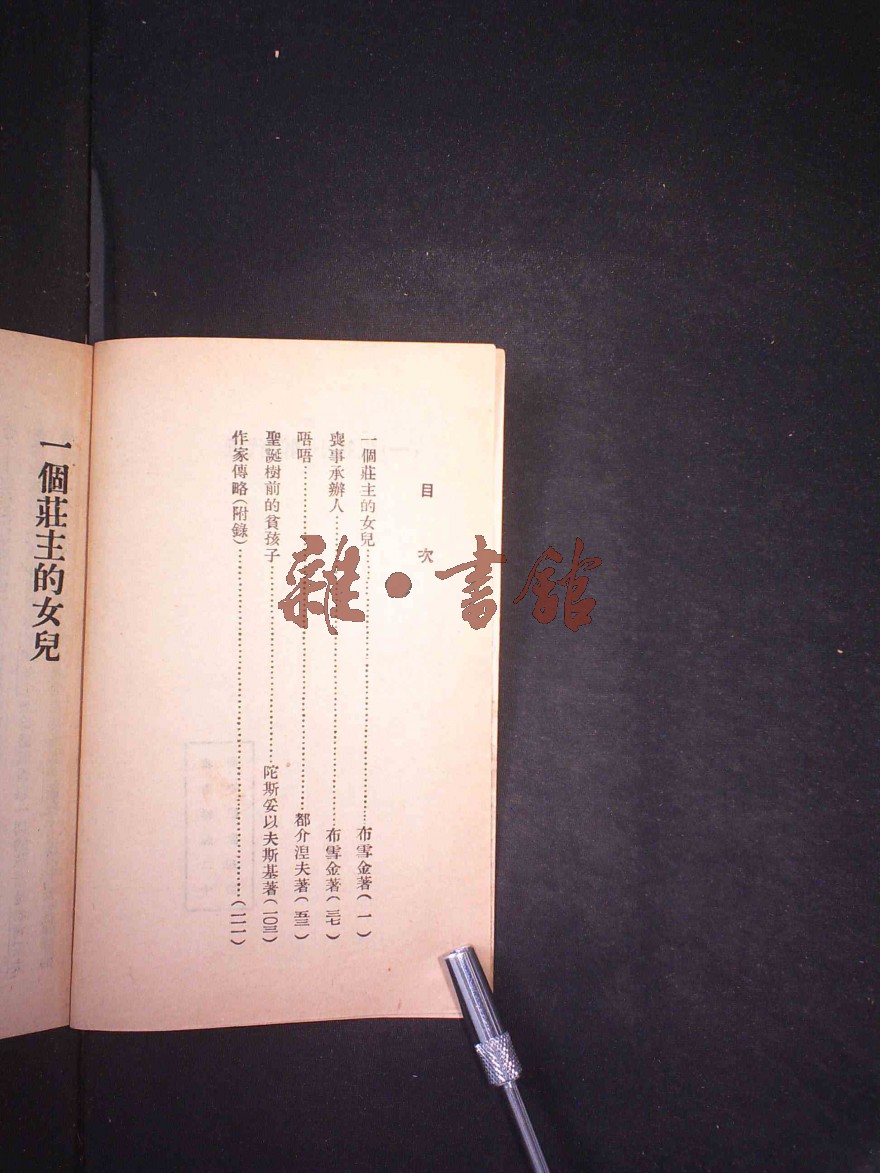 目次
一個莊主的女兒……布雪金著(一)
喪事承辦人……布雪金著(三七)
唔唔……都介涅夫著(五三)
聖誕樹前的貧孩子……陀斯妥以夫斯基著(一〇三)
作家傳略(附錄)……(一一一)
一個莊主的女兒
雜·書館